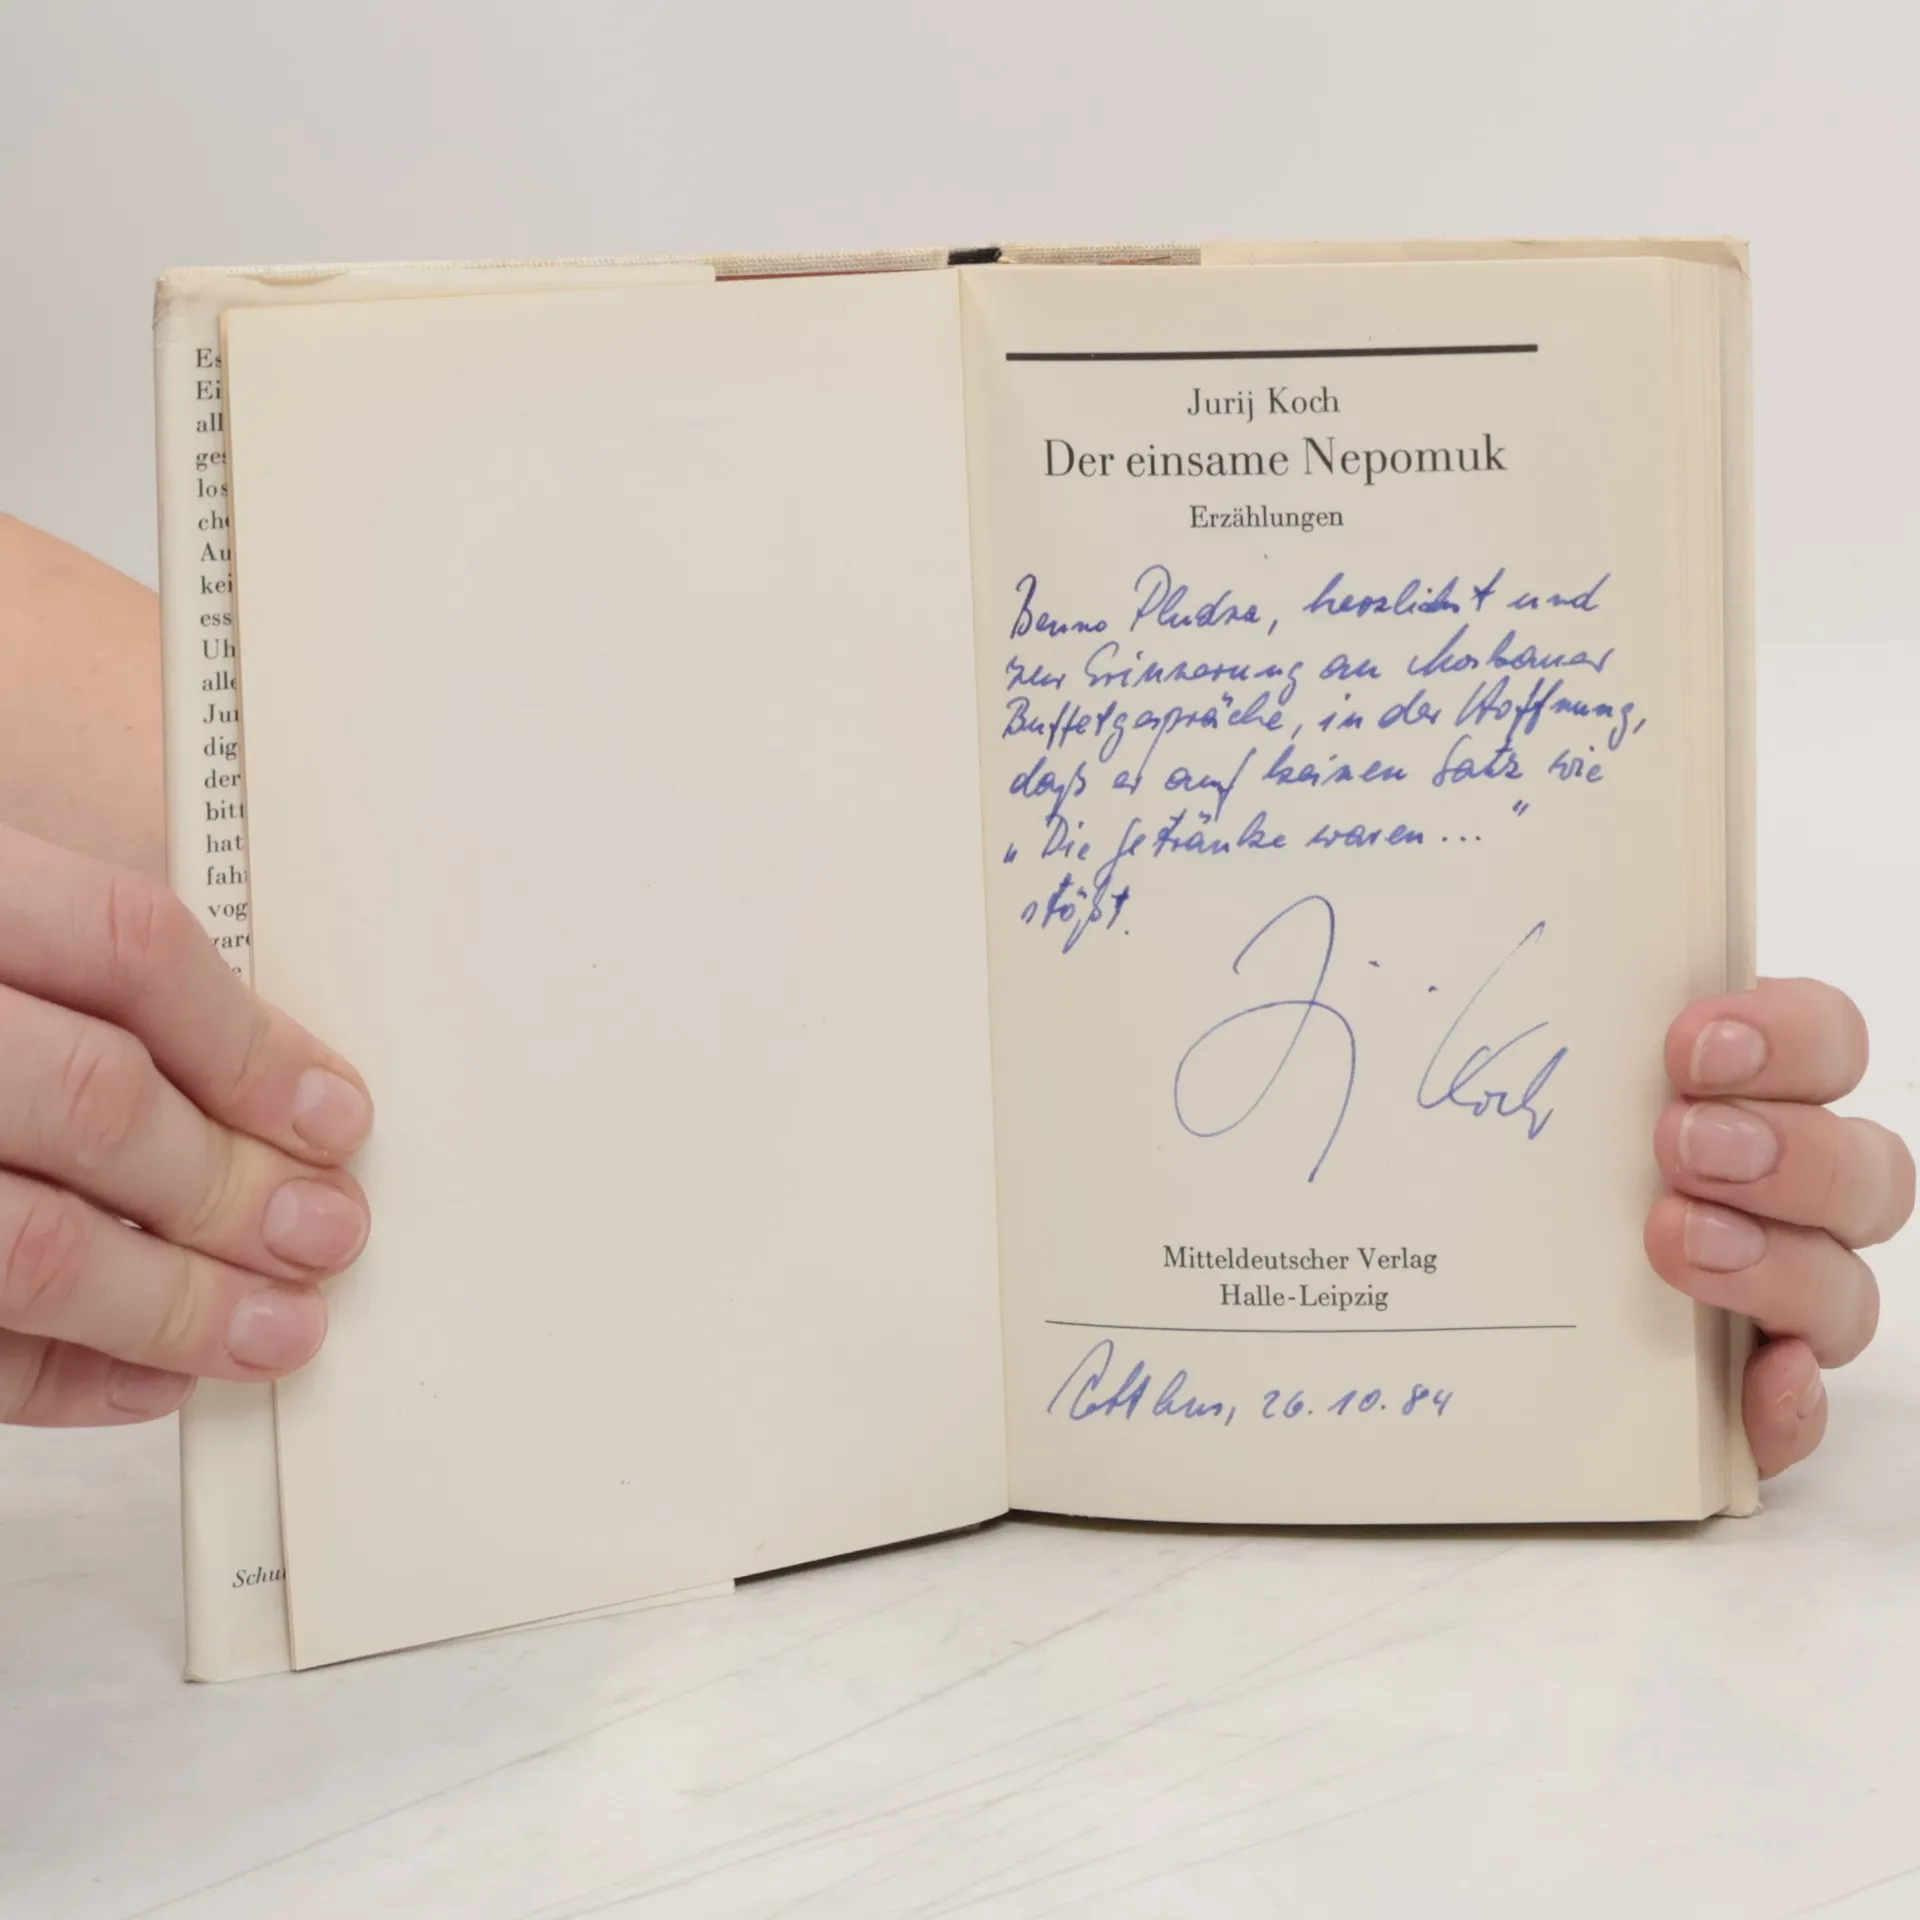 Es
Ei
all
ges
los
che
Au
kei
ess
Uh
alle
Jur
dig
der
bitt
hat
fah
vog
gar
e
Schu
Jurij Koch
Der einsame Nepomuk
Erzählungen
Benno Pludra, herzlichst und
zur Erinnerung an Moskauer
Buffetgespräche, in der Hoffnung,
daß er auf keinen Satz wie
„Die Getränke waren..."
stößt.
Jurij Koch
Mitteldeutscher Verlag
Halle-Leipzig
Cottbus, 26.10.84